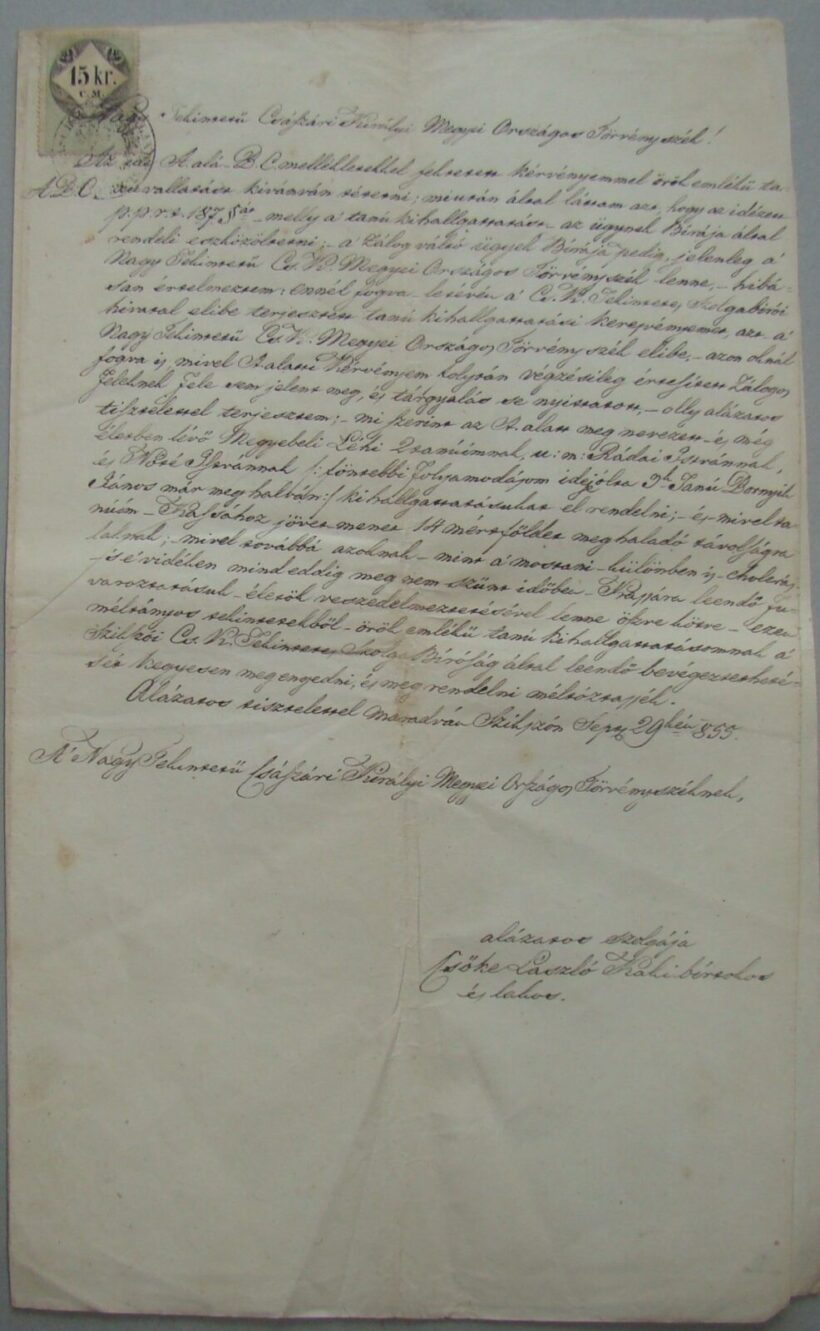 15 kr.
C. M.
Nagy Tekintetű Császári Királyi Megyei Országos Törvényszék!
Az ide A. alá B. C. mellékletekkel feltetett kérvényemmel örök emlékű ta-
A. B. C. núvallatást kivánván tétetni; miután által láttam azt, hogy az idézett
p. p. r. t. 187 §át – melly a' tanú kihallgattatást – az ügynek Birája által
rendeli eszközöltetni; – a' Zálog váltó ügyek Birája pedig, jelenleg a'
Nagy Tekintetű Cs. K. Megyei Országos Törvényszék lenne, – hibá-
san értelmeztem: ennél fogva – letévén a' Cs. K. Tekintetes Szolgabirói
hivatal elibe terjesztett tanú kihallgattatási kérvényemet, azt a'
Nagy Tekintetű Cs. K. Megyei Országos Törvényszék elibe, – azon oknál
fogva is mivel A. alatti Kérvényem folytán végzésileg értesitett Zálogos
Felelnek fele sem jelent meg, és tárgyalás se nyittatott, – olly alázatos
tisztelettel terjesztem; – mi szerint az A. alatt meg nevezett – és még
életben lévő Megyebeli Léhi 2 tanúimnak, u: m: Rádai Istvánnak,
és Nóté Istvánnak /: föntebbi folyamodásom idejólta 3ik Tanú Bornyik
János már meghalván :/ kihallgattatásukat el rendelni; – és mivel ta-
núim – Kassához jövet menet 14 mértföldet meghaladó távolságra
laknak; – mivel továbbá azoknak – mint a' mostani – különben is – cholerás
– 's e' vidéken mind eddig meg nem szünt időben – Kassára leendő fu-
varoztatásuk – életök veszedelmeztetésével lenne össze kötve – ezen
méltányos tekintetekből – örök emlékű tanú kihallgattatásomnak a'
Szikszói Cs. K. Tekintetes Szolga Biróság által leendő bevégeztetheté-
sét kegyesen megengedni, és meg rendelni méltóztassék.
Alázatos tisztelettel maradván Szikszón Sept 29kén 855.
A' Nagy Tekintetű Császári Királyi Megyei Országos Törvényszéknek,
alázatos szolgája
Csőke László Káhi birtokos
és lakos.